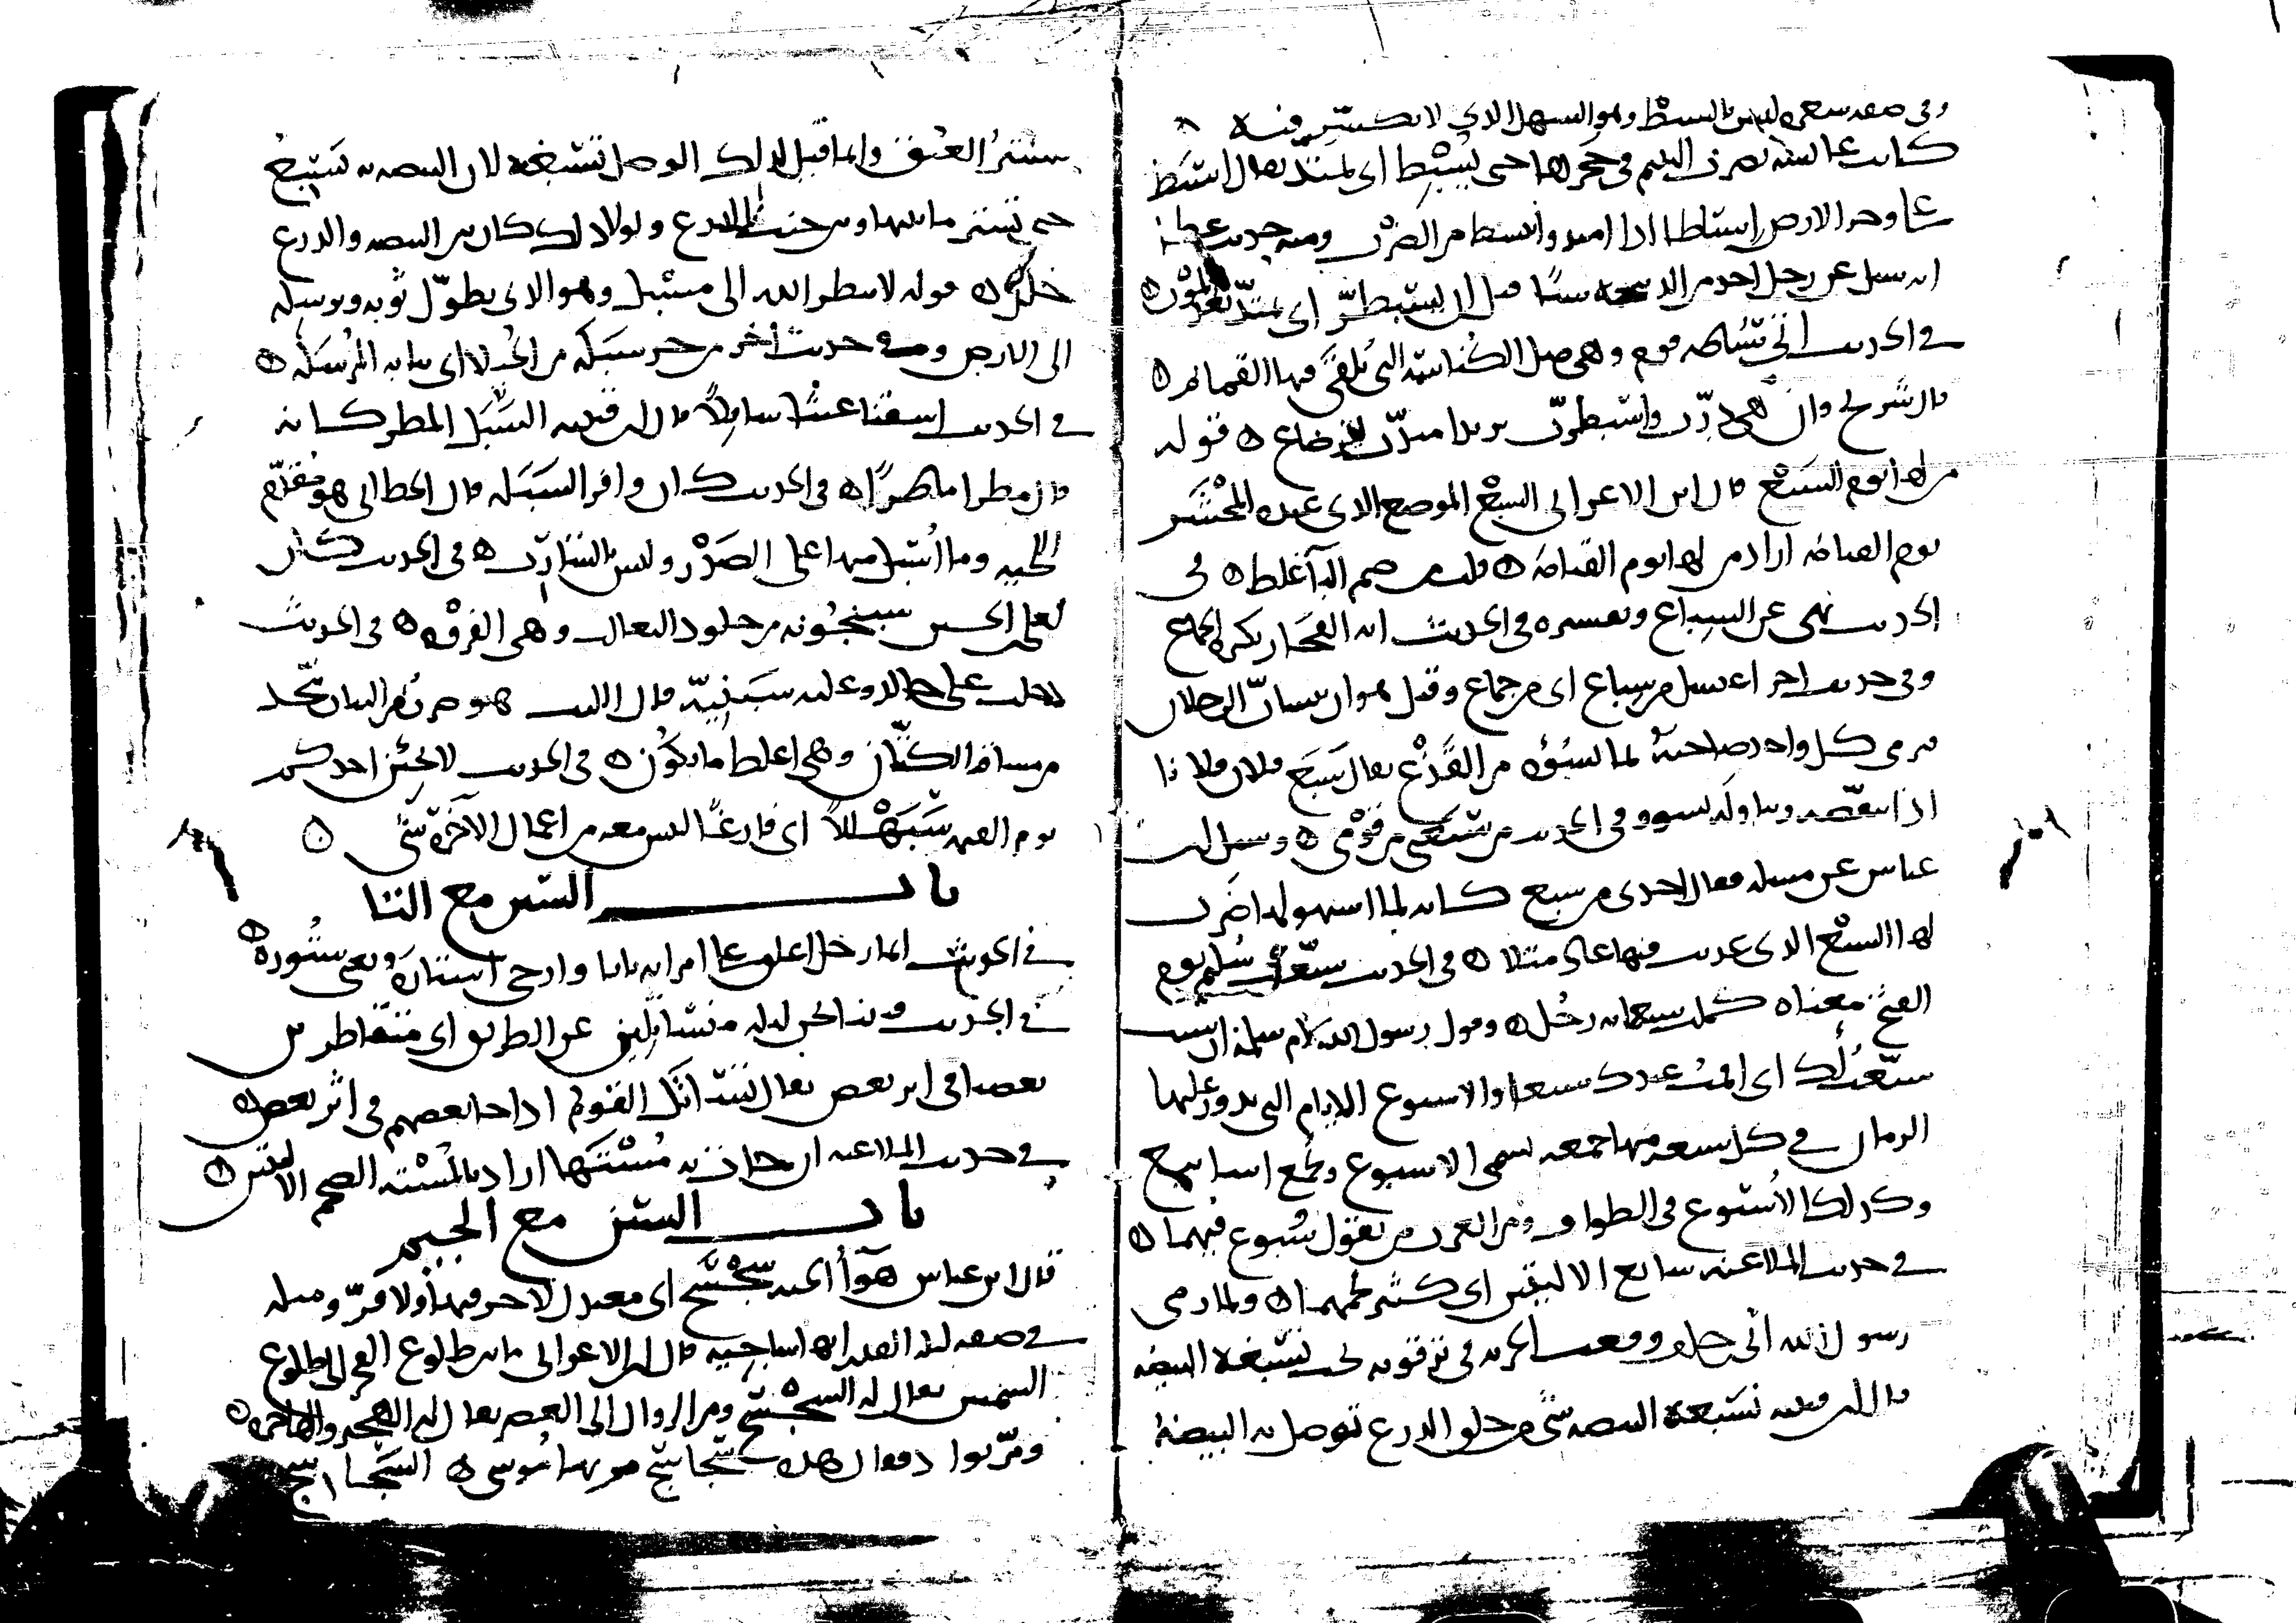 وفي صفه شعره ليس بالسبط وهو السهل الذي لا تكسر فيه
كانت عائشه تضرب اليتيم في حجرها حتى يسبط اى يمتد يقال اسبط
على وجه الارض اسباطا اذا امتد وانبسط من الضرب ومنه حديث عطا
انه سئل عن رجل اخذ من الذبيحه شيا قبل ان تسبطر اى تمتد بعد الموت
في الحديث اتى سباطه قوم وهي مثل الكناسه التي تلقى فيها القمامه
قال شريح وان هي درت واسبطرت يريد امتدت للرضاع قوله
من لها يوم السبع قال ابن الاعرابي السبع الموضع الذي عنده المحشر
يوم القيامه اراد من لها يوم القيامه قلت ضم البا غلط في
الحديث نهى عن السباع وتفسيره في الحديث انه الفخار بكثره الجماع
وفي حديث اخر اغتسل من سباع اى من جماع وقيل هو ان يتساب الرجلان
فيرمي كل واحد صاحبه بما يسوه من القذع يقال سبع فلان فلانا
اذا تنقصه وتناوله بسوء وفي الحديث من قومي وسئل ابن
عباس عن مسله فقال احدى من سبع كانه لما اسهولها ضرب
لها السبع الذي عذبت فيها عاد مثلا في الحديث سبعت سليم يوم
الفتح معناه كملت سبعمايه رجل وقول رسول الله لام سلمه ان شيت
سبعت لك اى اقمت عندك سبعا والاسبوع الايام التي يدور عليها
الزمان في كل سبعه منها جمعه تسمى الاسبوع وتجمع اسابيع
وكذلك الاسبوع في الطواف ومن العرب من يقول سبوع فيهما
في حديث الملاعنه سابغ الاليتين اى كثير لحمهما ولما رمى
رسول الله ابي بن خلف وقعت الحربه في ترقوته تحت تسبغه البيضه
قال ابن قتيبه تسبغه البيضه شى من حلق الدرع توصل به البيضه
يستر العنق وانما قيل لذلك الوصل تسبغه لان البيضه به تسبغ
حتى تستر ما بينها وبين جيب الدرع ولولا ذلك كان بين البيضه والدرع
خلل قوله لا ينظر الله الى مسبل وهو الذي يطول ثوبه ويرسله
الى الارض وفي حديث اخر من جر سبله من الخيلا اى ثيابه المرسله
في الحديث اسقنا غيثا سابلا قال ابن قتيبه السبل المطر كانه
قال مطرا ماطرا في الحديث كان وافر السبله قال الخطابي هو مقدم
اللحيه وما اسبل منها على الصدر وليس بالشارب في الحديث كان
لعلي بن الحسين سبنجونه من جلود الثعالب وهي الفروه في الحديث
دخلت على خالد وعليه سبنيه قال الليث هو ضرب من الثياب تتخذ
من مشاقه الكتان وهي اغلظ ما يكون في الحديث لا يجيئن احدكم
يوم القيمه سبهللا اى فارغا ليس معه من اعمال الاخره شى
باب السين مع التا
في الحديث ايما رجل اغلق على امراته بابا وارخى استاره ويعنى ستوره
في الحديث فبينا نحن ليله متساتلين عن الطريق اى متقاطرين
بعضنا في اثر بعض يقال تساتل القوم اذا جا بعضهم في اثر بعض
في حديث الملاعنه ان جات به مستها اراد بالمسته الضخم الاليتين
باب السين مع الجيم
قال ابن عباس هوا الجنه سجسج اى معتدل لا حر فيها ولا قر ومثله
في صفه ليله القدر انها ساجيه قال ابن الاعرابي ما بين طلوع الفجر الى طلوع
الشمس يقال له السجسج ومن الزوال الى العصر يقال له الهجير والهاجره
ومر بواد فقال هذه سجاسج مر بها موسى السجاسج